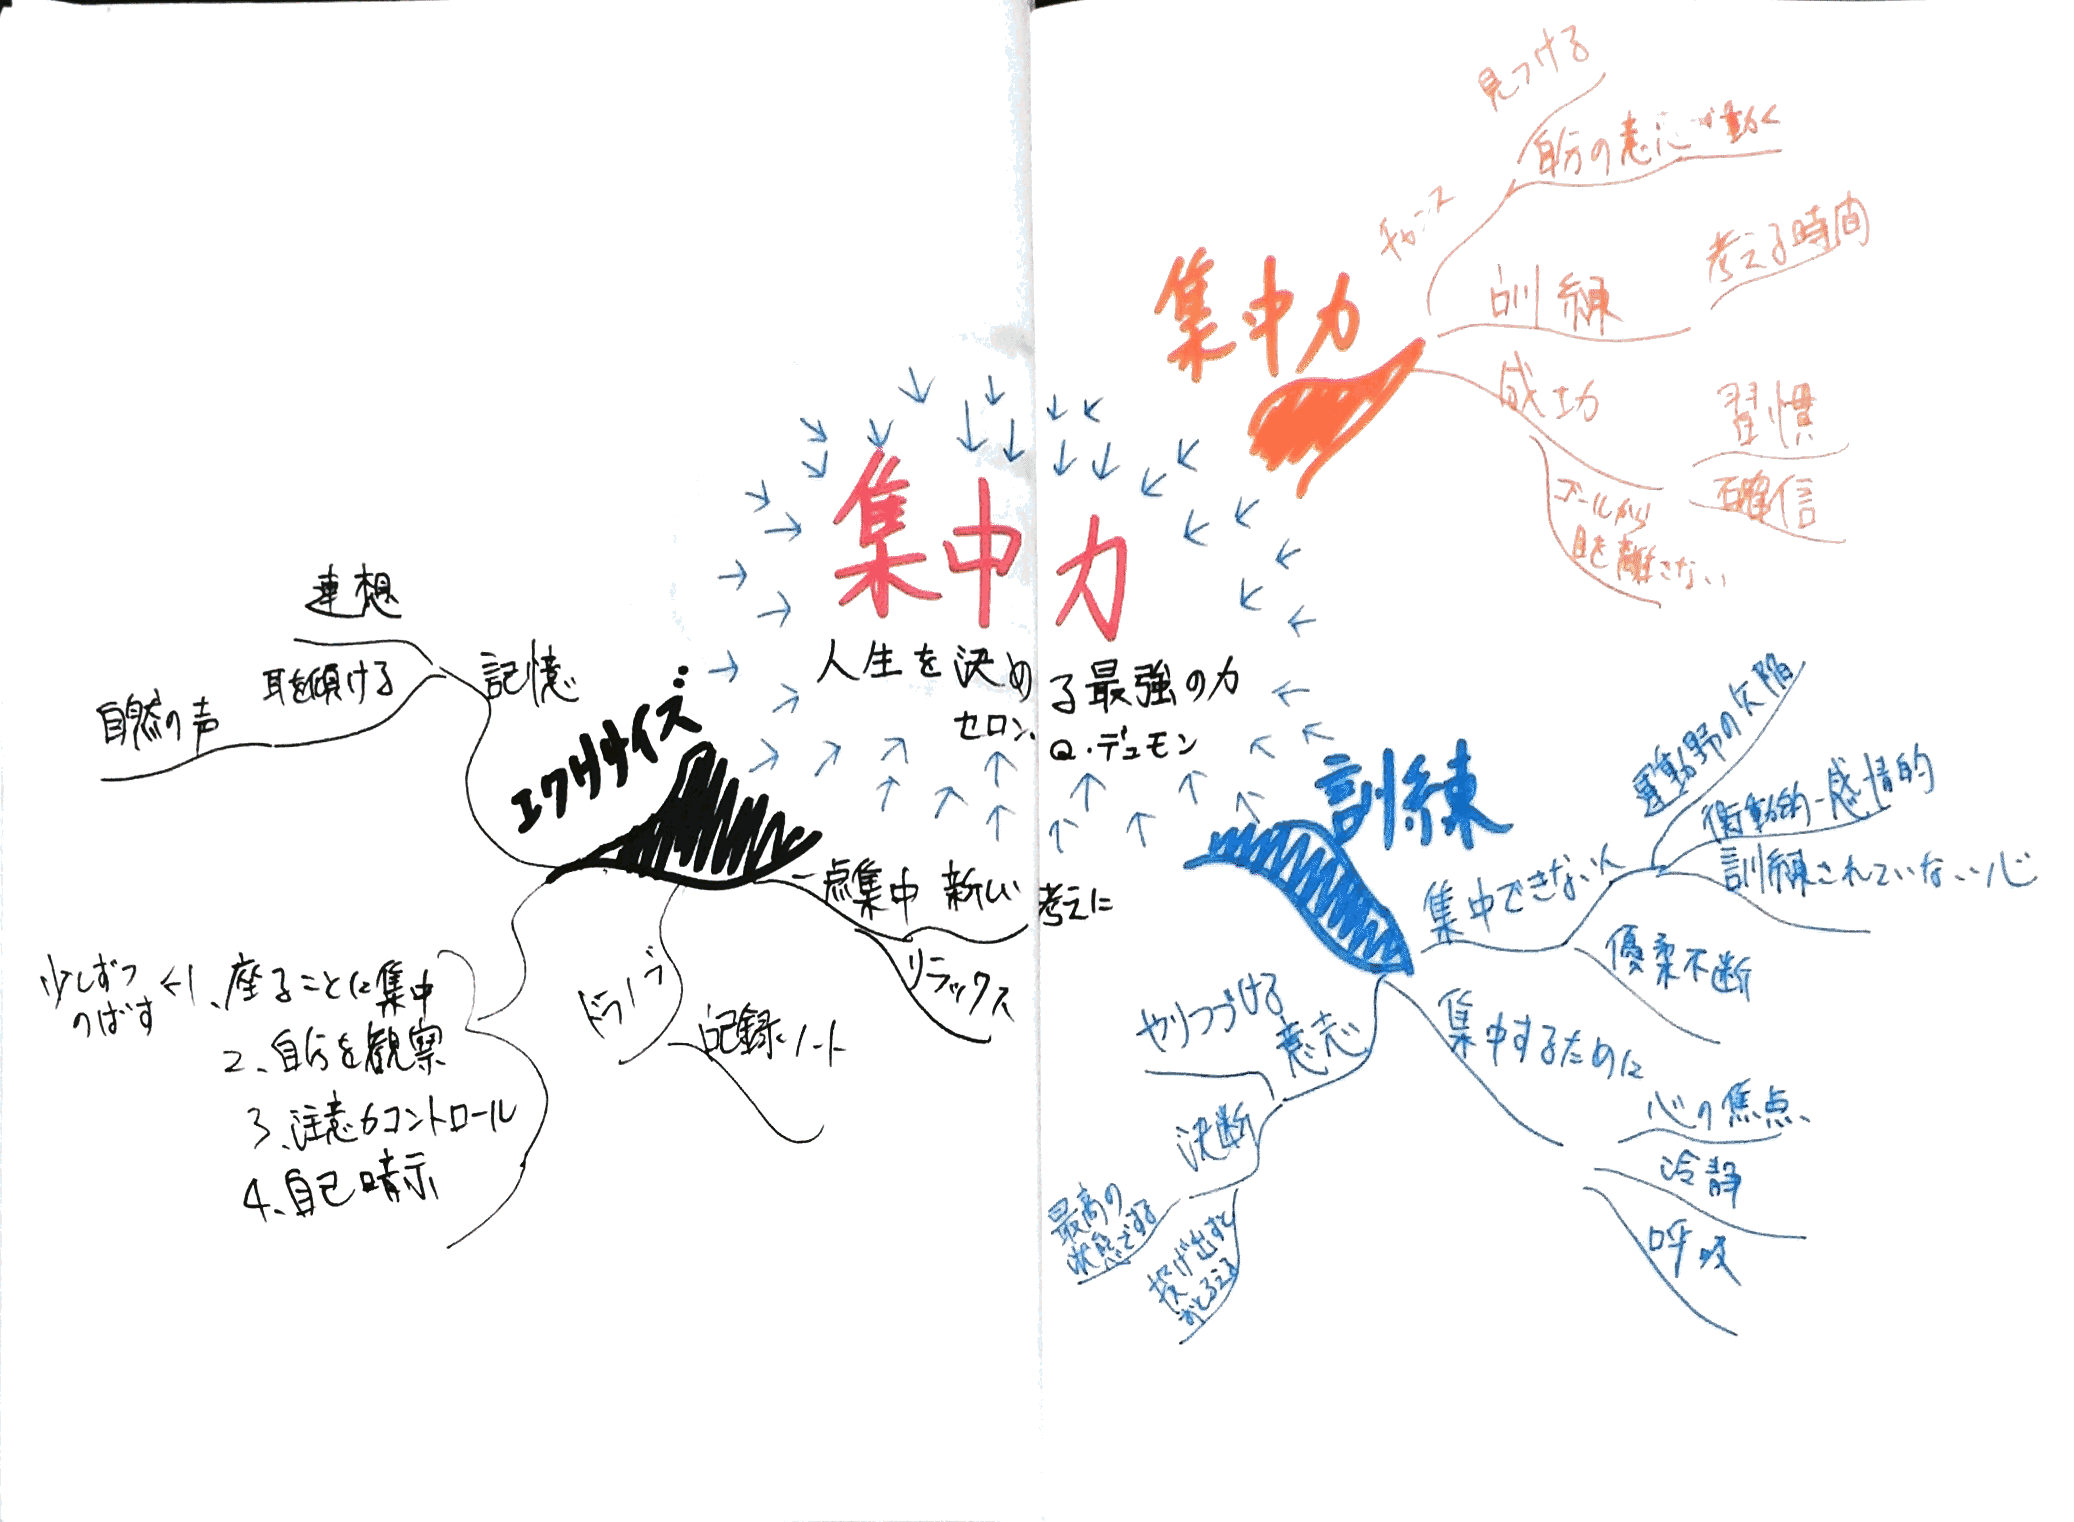 集中力
人生を決める最強の力
セロン.Q・デュモン
集中力
チャンス
見つける
自分の意志で動く
訓練
考える時間
成功
習慣
確信
ゴールから
目を離さない
訓練
集中できない人
運動野の欠陥
衝動的-感情的
訓練されていない心
優柔不断
集中するために
心の焦点
冷静
呼吸
意志
やりつづける
決断
最高の
状態でする
投げ出すと
おとろえる
エクササイズ
一点集中 新しい考えに
リラックス
ドライブ
記録ノート
1、座ることに集中
少しずつ
のばす
2、自分を観察
3、注意力コントロール
4、自己暗示
記憶
連想
耳を傾ける
自然の声